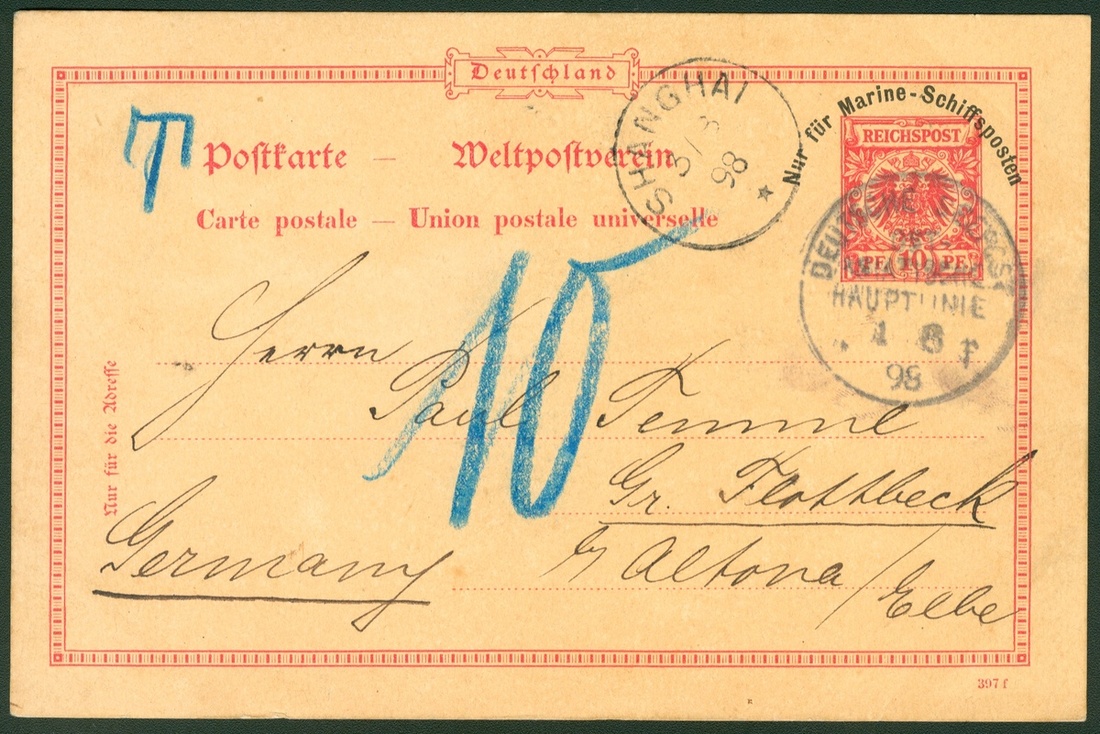 Deutschland
Nur für Marine-Schiffsposten
SHANGHAI
3/8
98
T
Postkarte — Weltpostverein
REICHSPOST
Carte postale — Union postale universelle
PF. 10 PF.
DEUTSCHE SEEPOST
OSTASIATISCHE
HAUPTLINIE
4 8
98
f
10
Herrn
Paul Temme
Gr. Flottbeck
b/ Altona/Elbe
Germany
Nur für die Adresse
397 f